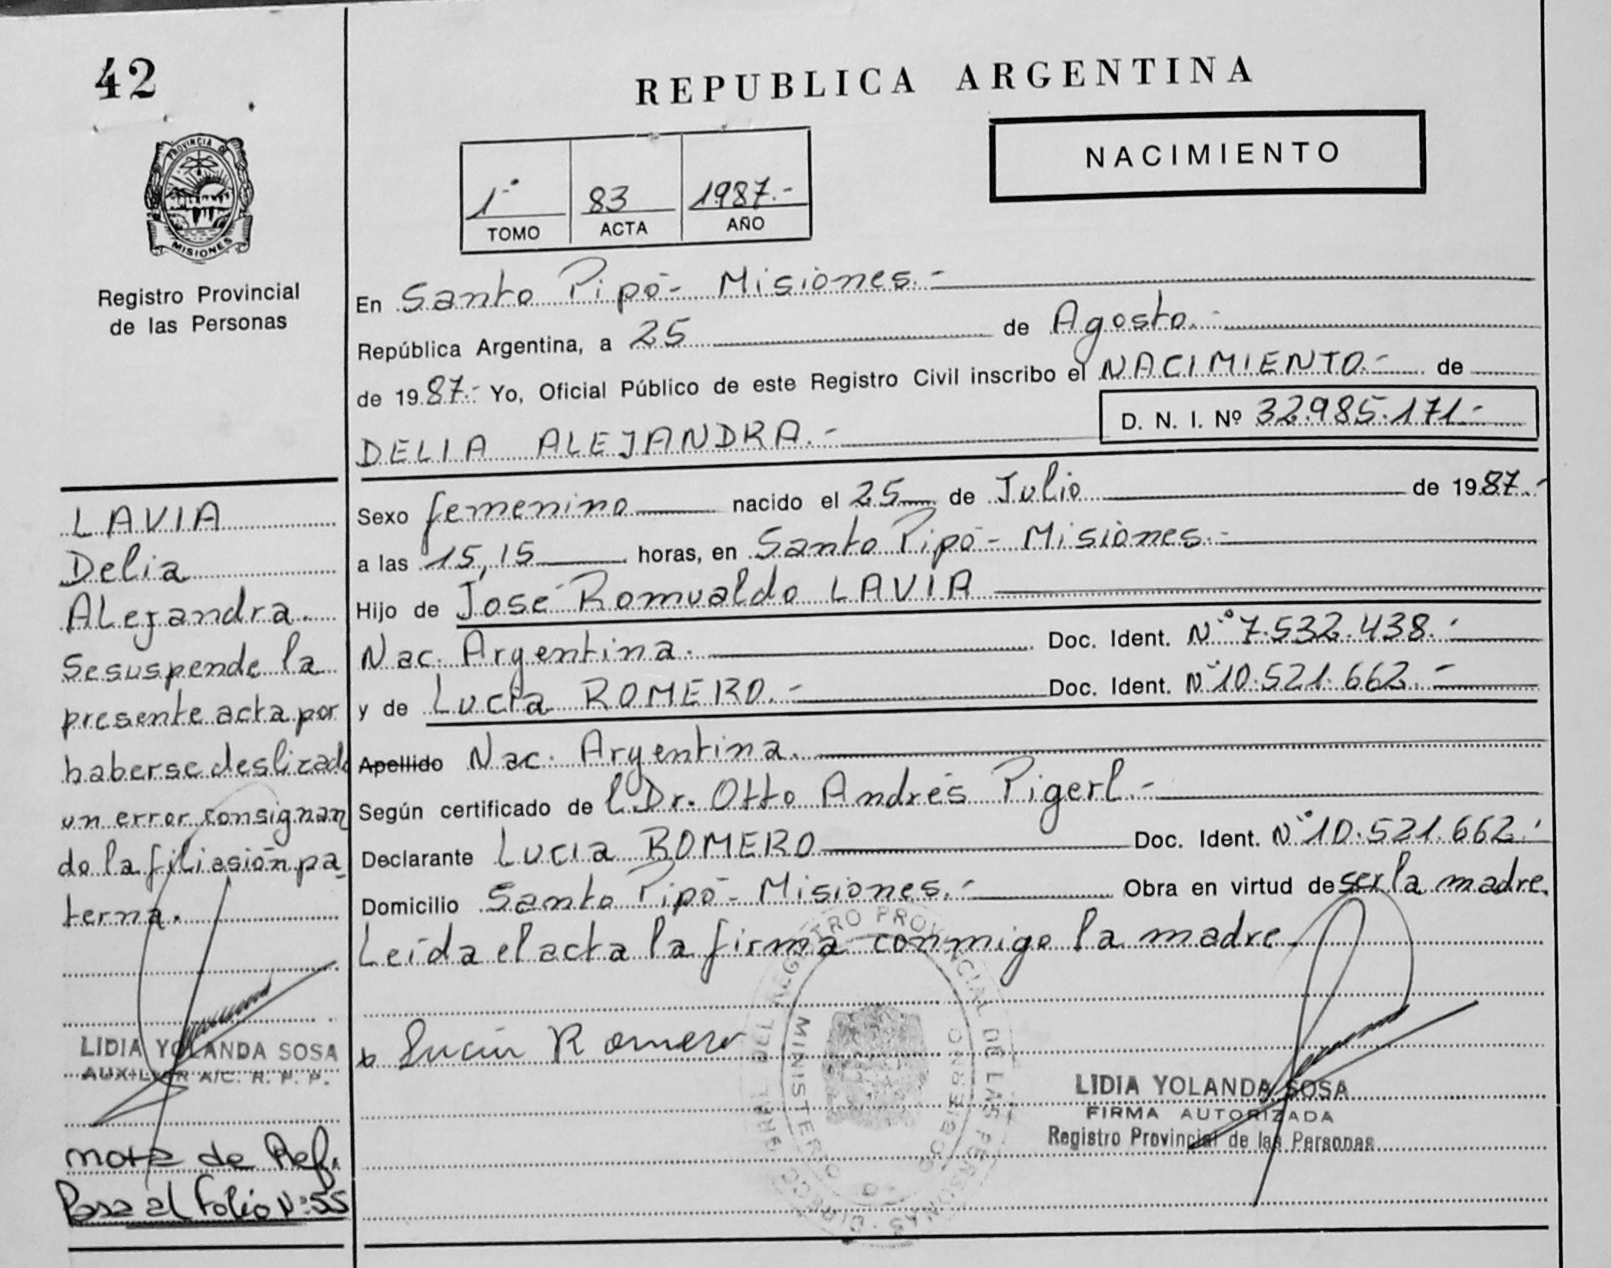 42
REPUBLICA ARGENTINA
PROVINCIA D
MISIONES
Registro Provincial
de las Personas
1° 83 1987.-
TOMO ACTA AÑO
NACIMIENTO
En Santo Pipó- Misiones.-
República Argentina, a 25 de Agosto.-
de 1987.- Yo, Oficial Público de este Registro Civil inscribo el NACIMIENTO.- de
DELIA ALEJANDRA.- D. N. I. Nº 32.985.171.-
Sexo femenino nacido el 25 de Julio de 1987.-
a las 15,15 horas, en Santo Pipó- Misiones.-
Hijo de José Romualdo LAVIA
Nac. Argentina. Doc. Ident. N° 7.532.438.-
y de Lucía ROMERO.- Doc. Ident. N° 10.521.662.-
Apellido Nac. Argentina.
Según certificado de l Dr. Otto Andrés Pigerl.-
Declarante Lucía ROMERO Doc. Ident. N° 10.521.662.-
Domicilio Santo Pipó- Misiones.- Obra en virtud de ser la madre.
Leída el acta la firma conmigo la madre.
Lucía Romero
LIDIA YOLANDA SOSA
FIRMA AUTORIZADA
Registro Provincial de las Personas
DIRECC GRAL DEL REGISTRO PROVINCIAL DE LAS PERSONAS
MINISTERIO D GOBIERNO
LAVIA
Delia
Alejandra.
Se suspende la
presente acta por
haberse deslizado
un error consignan
do la filiasión pa_
terna.
LIDIA YOLANDA SOSA
AUXILIAR A/C. R. P. P.
nota de Ref.
Pasa al Folio N° 55